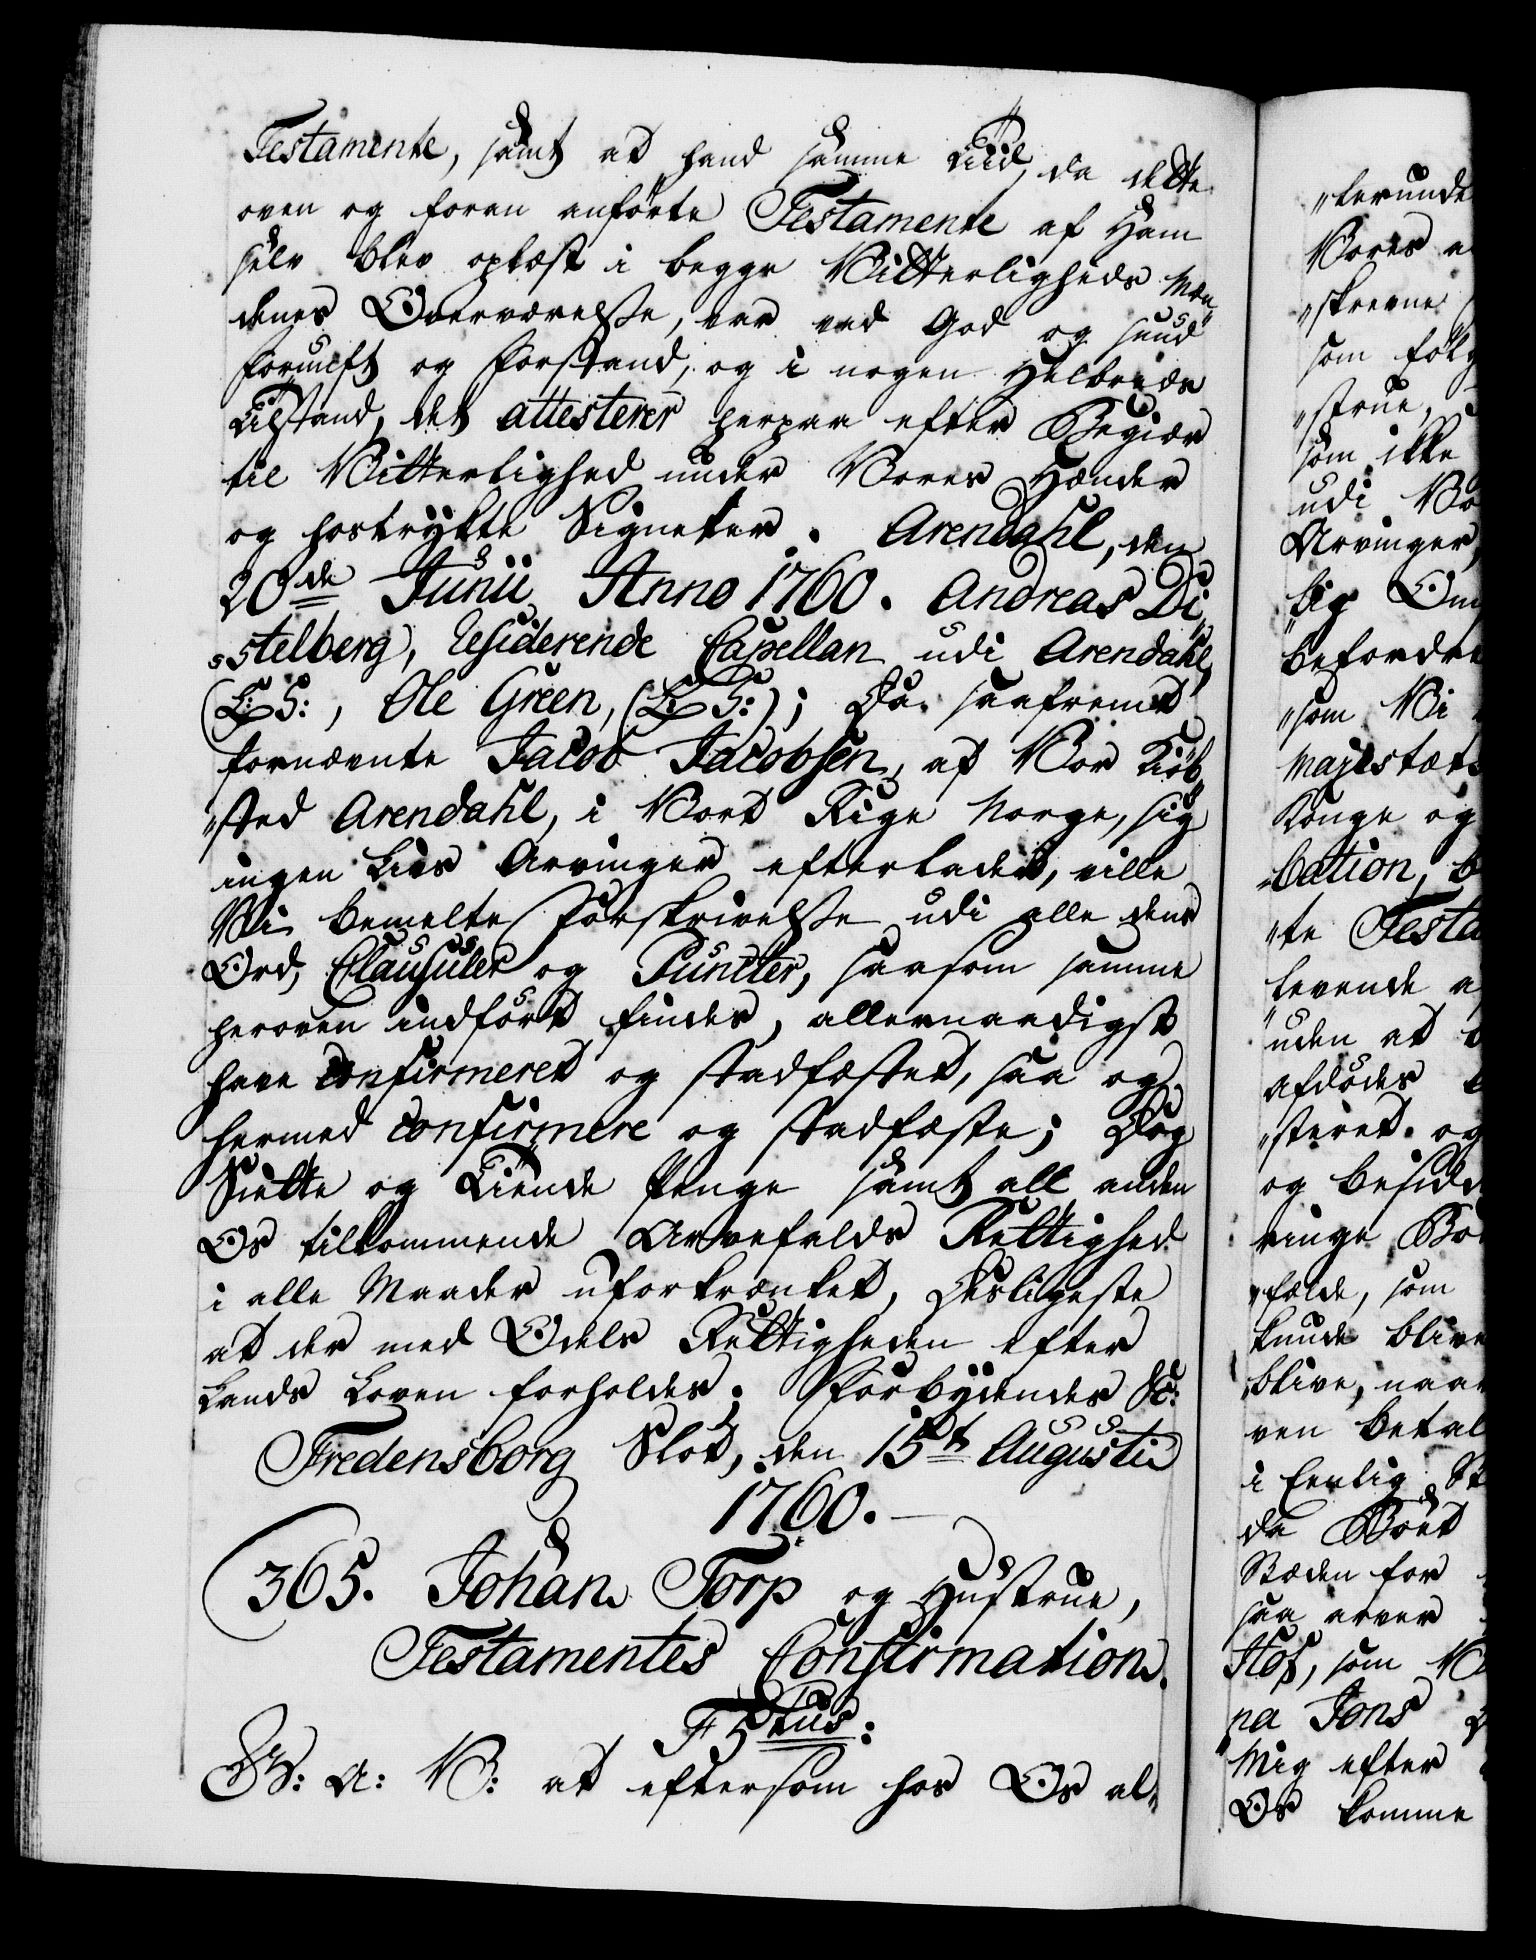 Testamente, samt at hand samme Tiid, da dette
oven og foran anførte Testamente af Ham
selv blev oplæst i begge Vitterligheds Mæn„
denes Overværelse, var ved God og sund
fornuft og Forstand, og i nogen Helbreds
Tilstand, det attesterer herpaa efter Begiær
til Vitterlighed under Vores Hænder
og hostrykte Signeter. Arendahl, den
20de Junii Anno 1760. Andreas Di„
„stelberg, Residerende Capellan udi Arendahl,
(L:S:, Ole Green, (L:S:); Da saafremt
fornævnte Jacob Jacobsen, af Vor Kiøb„
„sted Arendahl, i Vort Rige Norge, sig
ingen Livs Arvinger efterlader, ville
Vi bemelte Forskrivelse udi alle dens
Ord, Clausuler og Puncter, saasom samme
heroven indført findes, allernaadigst
have confirmeret og stadfæstet, saa og
hermed confirmere og stadfæste; Dog
Siette og Tiende Penge samt all anden
Os tilkommende Arvefalds Rettighed
i alle Maader uforkrænket, Desligeste
at der med Odels Rettigheden efter
Lands Loven forholdes. Forbydendes &c:
Fredensborg Slot, den 15de Augusti
1760.
365. Johan Torp og Hustrue,
Testamentes Confirmation.
F 5tus:
G: A: V: at eftersom hos Os al„
„lerunde
Vores a
„skrevne
som følg
„strue,
som ikke
udi Vo
Arvinger,
lig Om
befordre
„som Vi
Majestæts
Konge og
„bation, b
„te Testa
levende a
uden at
afdødes
„steret og
og besidd
ringe Bo
„fælde, som
kunde blive
blive, naar
ven betal
i Eenlig St
da Boet
Steden for
saa arver
Hos, som
na Jons
Mig efter
Os komme